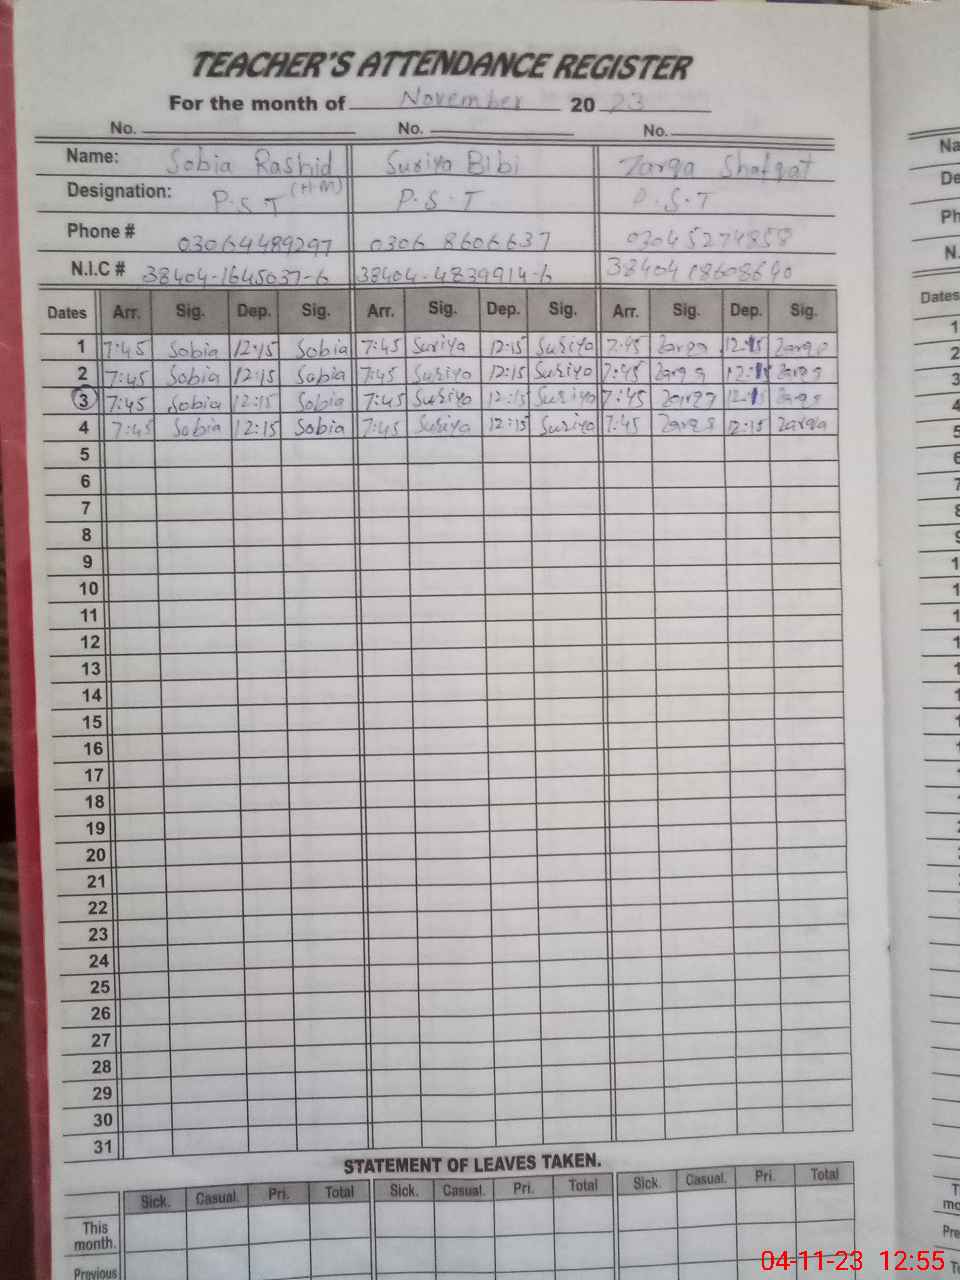 TEACHER'S ATTENDANCE REGISTER
For the month of November 2023
No. No. No.
Name: Sobia Rashid Suriya Bibi Zarqa Shafqat
Designation: P.S.T (H.M) P.S.T P.S.T
Phone # 03064489297 0306 8606637 03045274858
N.I.C # 38404-1645037-6 38404-4839914-6 38404 18608640
Dates Arr. Sig. Dep. Sig. Arr. Sig. Dep. Sig. Arr. Sig. Dep. Sig.
1 7:45 Sobia 12:15 Sobia 7:45 Suriya 12:15 Suriya 7:45 Zarqa 12:15 Zarqa
2 7:45 Sobia 12:15 Sobia 7:45 Suriya 12:15 Suriya 7:45 Zarqa 12:15 Zarqa
3 7:45 Sobia 12:15 Sobia 7:45 Suriya 12:15 Suriya 7:45 Zarqa 12:15 Zarqa
4 7:45 Sobia 12:15 Sobia 7:45 Suriya 12:15 Suriya 7:45 Zarqa 12:15 Zarqa
5
6
7
8
9
10
11
12
13
14
15
16
17
18
19
20
21
22
23
24
25
26
27
28
29
30
31
STATEMENT OF LEAVES TAKEN.
Sick. Casual. Pri. Total Sick. Casual. Pri. Total Sick. Casual. Pri. Total
This month.
Previous
04-11-23 12:55